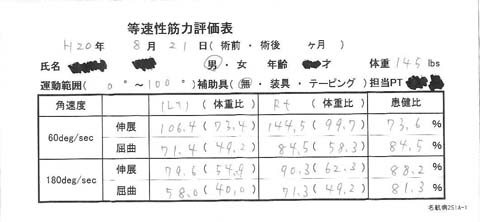 等速性筋力評価表
H20年 8月21日(術前・術後 ヶ月)
氏名 男・女 年齢 才 体重 145 lbs
運動範囲(0°~100°)補助具(無・装具・テーピング)担当PT
角速度 (Lt) (体重比) Rt (体重比) 患健比
60deg/sec 伸展 106.4 (73.4) 144.5 (99.7) 73.6 %
屈曲 71.4 (49.2) 84.5 (58.3) 84.5 %
180deg/sec 伸展 79.6 (54.9) 90.3 (62.3) 88.2 %
屈曲 58.0 (40.0) 71.3 (49.2) 81.3 %
名航病251A-1